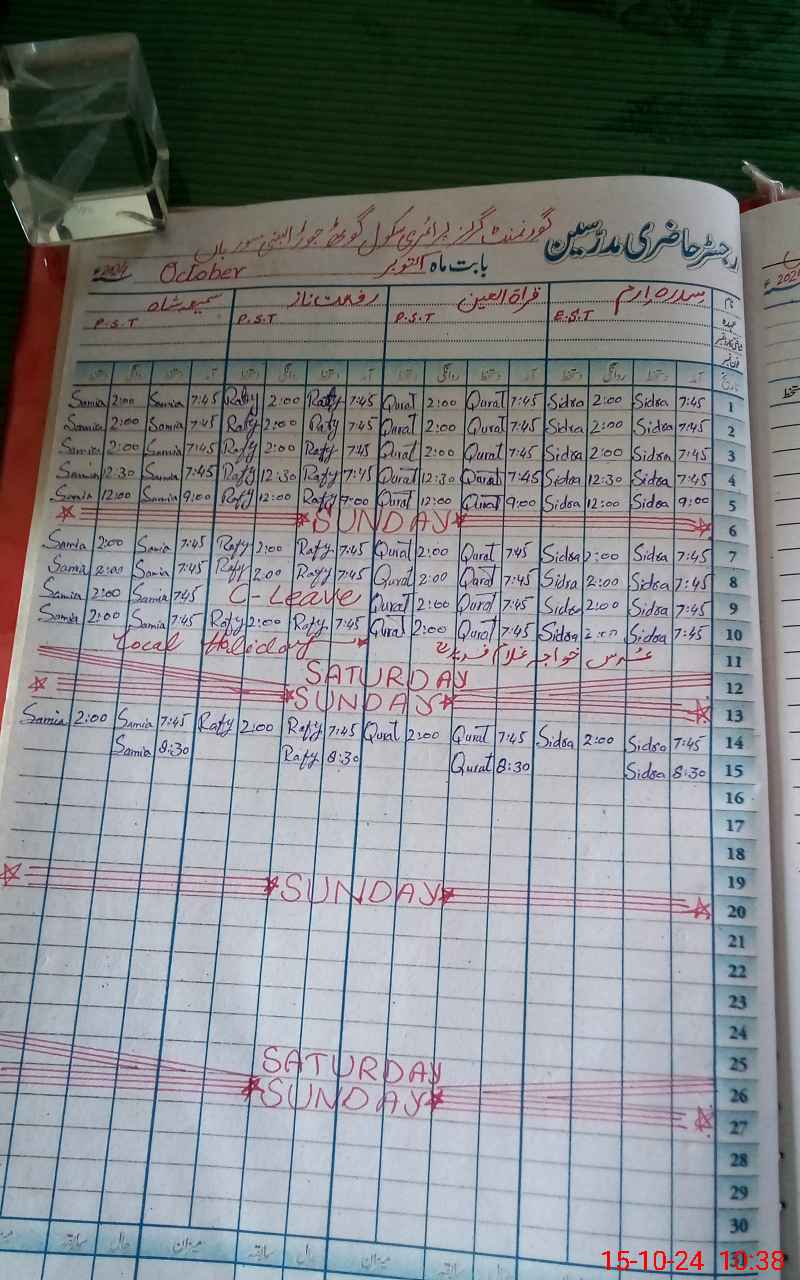 رجسٹر حاضری مدرسین گورنمنٹ گرلز پرائمری سکول گوٹھ
بابت ماہ اکتوبر October 2024ء
نام سدرہ ارم قراۃ العین رفعت ناز سمیعہ شاہ
عہدہ E.S.T P.S.T P.S.T P.S.T
تاریخ آمد دستخط روانگی دستخط آمد دستخط روانگی دستخط آمد دستخط روانگی دستخط آمد دستخط روانگی دستخط
Samia 2:00 Samia 7:45 Rafy 2:00 Rafy 7:45 Qurat 2:00 Qurat 7:45 Sidra 2:00 Sidra 7:45 1
Samia 2:00 Samia 7:45 Rafy 2:00 Rafy 7:45 Qurat 2:00 Qurat 7:45 Sidra 2:00 Sidra 7:45 2
Samia 2:00 Samia 7:45 Rafy 2:00 Rafy 7:45 Qurat 2:00 Qurat 7:45 Sidra 2:00 Sidra 7:45 3
Samia 12:30 Samia 7:45 Rafy 12:30 Rafy 7:45 Qurat 12:30 Qurat 7:45 Sidra 12:30 Sidra 7:45 4
Samia 12:00 Samia 9:00 Rafy 12:00 Rafy 9:00 Qurat 12:00 Qurat 9:00 Sidra 12:00 Sidra 9:00 5
SUNDAY 6
Samia 2:00 Samia 7:45 Rafy 2:00 Rafy 7:45 Qurat 2:00 Qurat 7:45 Sidra 2:00 Sidra 7:45 7
Samia 2:00 Samia 7:45 Rafy 2:00 Rafy 7:45 Qurat 2:00 Qurat 7:45 Sidra 2:00 Sidra 7:45 8
Samia 2:00 Samia 7:45 C-Leave Qurat 2:00 Qurat 7:45 Sidra 2:00 Sidra 7:45 9
Samia 2:00 Samia 7:45 Rafy 2:00 Rafy 7:45 Qurat 2:00 Qurat 7:45 Sidra 2:00 Sidra 7:45 10
Local Holiday عرس خواجہ غلام فرید 11
SATURDAY 12
SUNDAY 13
Samia 2:00 Samia 7:45 Rafy 2:00 Rafy 7:45 Qurat 2:00 Qurat 7:45 Sidra 2:00 Sidra 7:45 14
Samia 8:30 Rafy 8:30 Qurat 8:30 Sidra 8:30 15
16
17
18
19
SUNDAY 20
21
22
23
24
25
SATURDAY 26
SUNDAY 27
28
29
30
میزان حال سابقہ میزان حال سابقہ
15-10-24 10:38